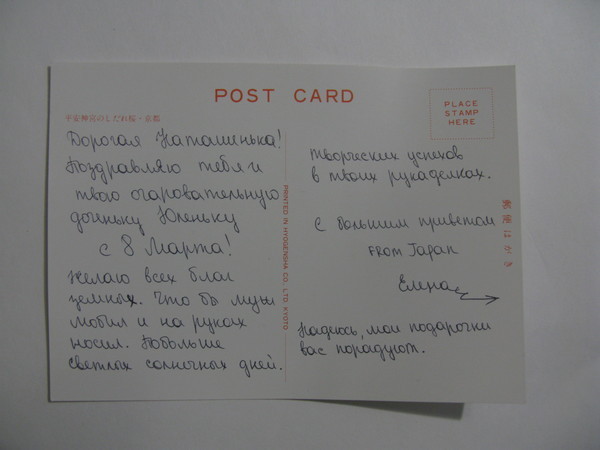 POST CARD
PLACE
STAMP
HERE
平安神宮のしだれ桜・京都
Дорогая Наташенька!
Поздравляю тебя и
твою очаровательную
доченьку Юленьку
с 8 Марта!
Желаю всех благ
земных. Что бы муж
любил и на руках
носил. Побольше
светлых солнечных дней.
PRINTED IN HYOGENSHA CO., LTD. KYOTO
творческих успехов
в твоих рукаделках.
С большим приветом
FROM Japan
Елена
Надеюсь, мои подарочки
вас порадуют.
郵便はがき